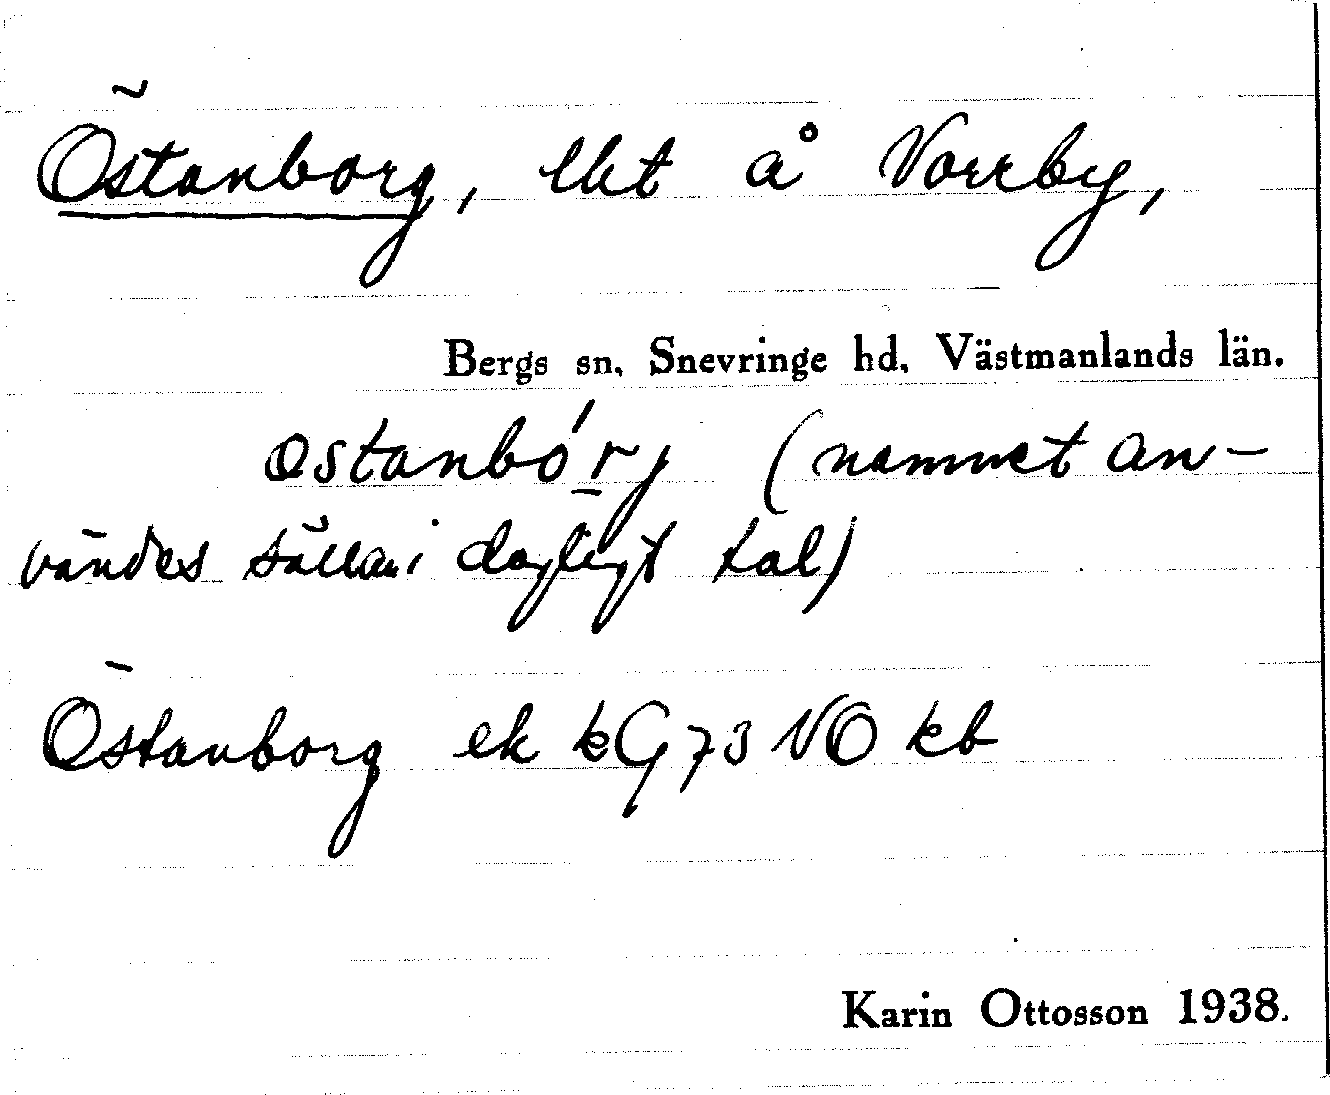 Östanborg, lht å Vorrby,
Bergs sn, Snevringe hd, Västmanlands län.
østanbó̱rj (namnet an-
vändes sällan i dagligt tal)
Östanborg ek kG 73 NO kb
Karin Ottosson 1938.